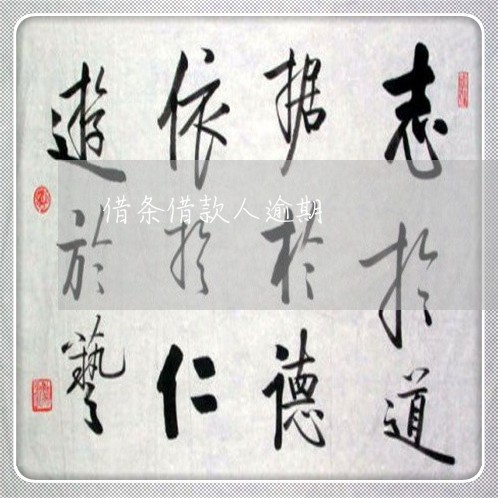 志於道
据於德
依於仁
遊於藝
借条借款人逾期